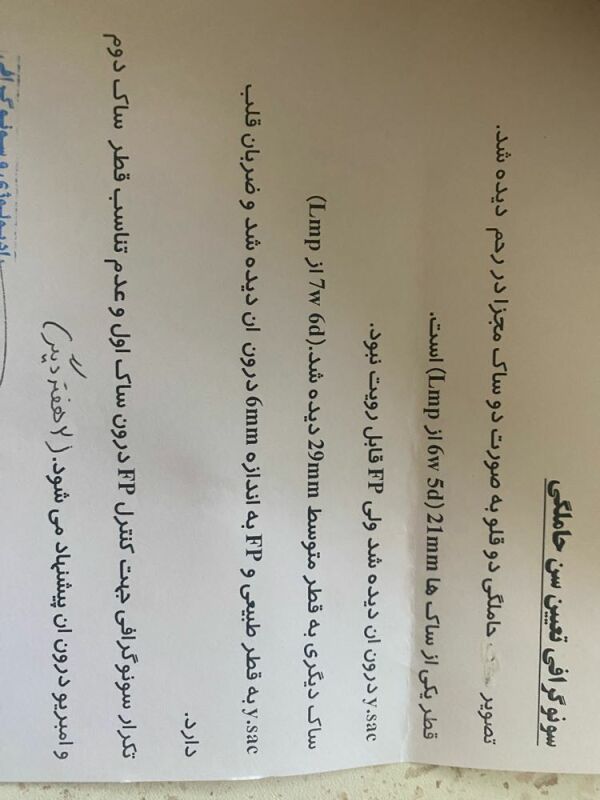 سونوگرافی تعیین سن حاملگی
تصویر حاملگی دوقلو به صورت دو ساک مجزا در رحم دیده شد.
قطر یکی از ساک ها 21mm (6w 5d از Lmp) است.
y.sac درون ان دیده شد ولی FP قابل رویت نبود.
ساک دیگری به قطر متوسط 29mm دیده شد.(7w 6d از Lmp)
y.sac به قطر طبیعی و FP به اندازه 6mm درون ان دیده شد و ضربان قلب
دارد.
تکرار سونوگرافی جهت کنترل FP درون ساک اول و عدم تناسب قطر ساک دوم
و امبریو درون ان پیشنهاد می شود. (۲ هفته دیگر)
رادیولوژی و سونوگرافی